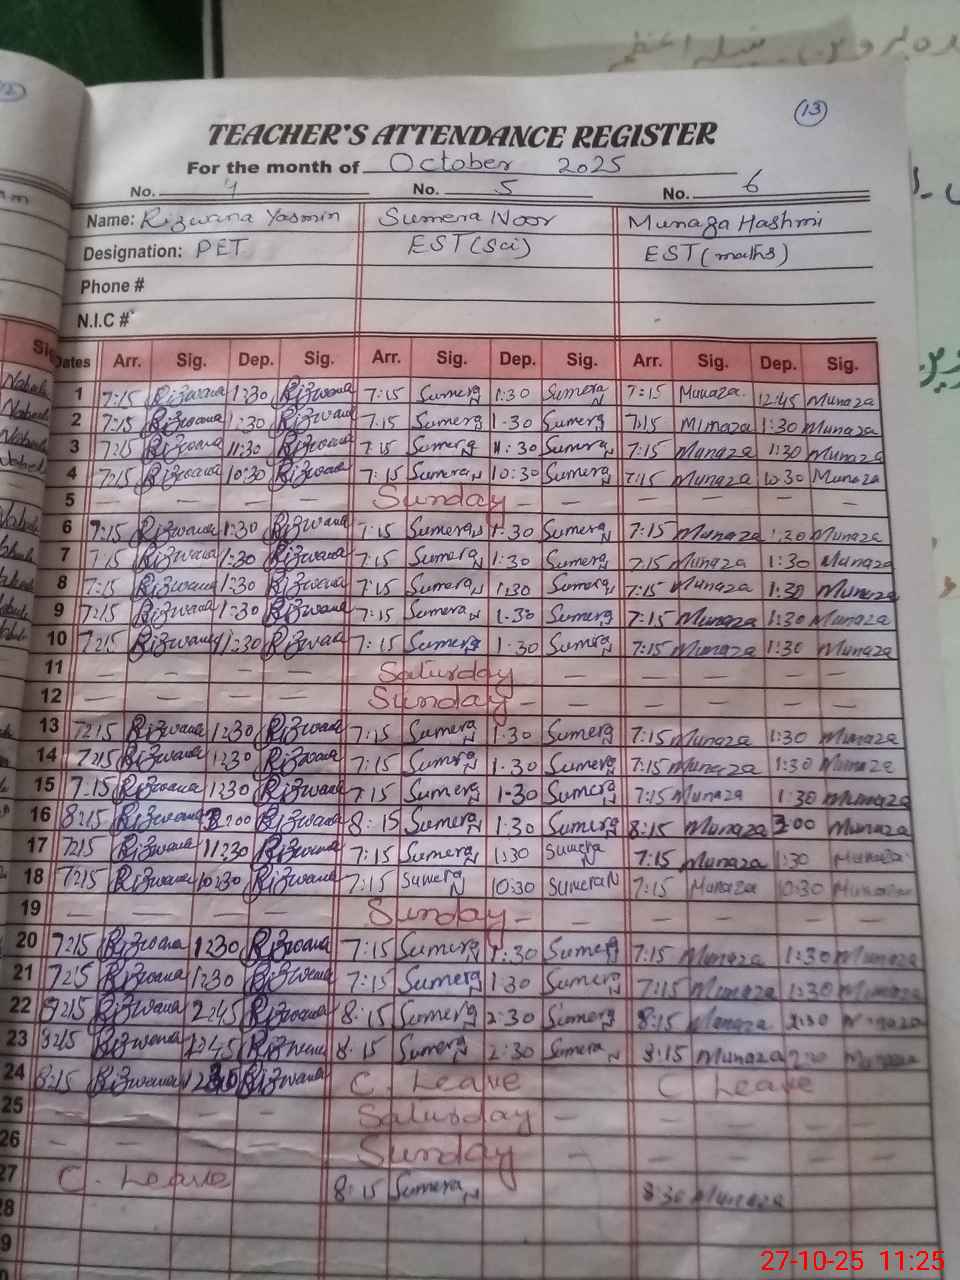 13
TEACHER'S ATTENDANCE REGISTER
For the month of October 2025
No. 4 No. 5 No. 6
Name: Rizwana Yasmin Sumera Noor Munaza Hashmi
Designation: PET EST (Sci) EST (maths)
Phone #
N.I.C #
Dates Arr. Sig. Dep. Sig. Arr. Sig. Dep. Sig. Arr. Sig. Dep. Sig.
1 7:15 Rizwana 1:30 Rizwana 7:15 Sumera N 1:30 Sumera N 7:15 Munaza 12:45 Munaza
2 7:15 Rizwana 1:30 Rizwana 7:15 Sumera N 1:30 Sumera N 7:15 Munaza 1:30 Munaza
3 7:15 Rizwana 11:30 Rizwana 7:15 Sumera N 11:30 Sumera N 7:15 Munaza 1:30 Munaza
4 7:15 Rizwana 10:30 Rizwana 7:15 Sumera N 10:30 Sumera N 7:15 Munaza 10:30 Munaza
5 — — — — Sunday — — — — — —
6 7:15 Rizwana 1:30 Rizwana 7:15 Sumera N 1:30 Sumera N 7:15 Munaza 1:30 Munaza
7 7:15 Rizwana 1:30 Rizwana 7:15 Sumera N 1:30 Sumera N 7:15 Munaza 1:30 Munaza
8 7:15 Rizwana 1:30 Rizwana 7:15 Sumera N 1:30 Sumera N 7:15 Munaza 1:30 Munaza
9 7:15 Rizwana 1:30 Rizwana 7:15 Sumera N 1:30 Sumera N 7:15 Munaza 1:30 Munaza
10 7:15 Rizwana 1:30 Rizwana 7:15 Sumera N 1:30 Sumera N 7:15 Munaza 1:30 Munaza
11 — — — — Saturday — — — — —
12 — — — — Sunday — — — — — —
13 7:15 Rizwana 1:30 Rizwana 7:15 Sumera N 1:30 Sumera N 7:15 Munaza 1:30 Munaza
14 7:15 Rizwana 1:30 Rizwana 7:15 Sumera N 1:30 Sumera N 7:15 Munaza 1:30 Munaza
15 7:15 Rizwana 1:30 Rizwana 7:15 Sumera N 1:30 Sumera N 7:15 Munaza 1:30 Munaza
16 8:15 Rizwana :00 Rizwana 8:15 Sumera N 1:30 Sumera N 8:15 Munaza :00 Munaza
17 7:15 Rizwana 11:30 Rizwana 7:15 Sumera N 1:30 Sumera N 7:15 Munaza 1:30 Munaza
18 7:15 Rizwana 10:30 Rizwana 7:15 Sumera N 10:30 Sumera N 7:15 Munaza 10:30 Munaza
19 — — — — Sunday — — — — — —
20 7:15 Rizwana 1:30 Rizwana 7:15 Sumera N 1:30 Sumera N 7:15 Munaza 1:30 Munaza
21 7:15 Rizwana 1:30 Rizwana 7:15 Sumera N 1:30 Sumera N 7:15 Munaza 1:30 Munaza
22 Rizwana 2:45 Rizwana 8:15 Sumera N 2:30 Sumera N 8:15 Munaza 2:30 Munaza
23 8:15 Rizwana Rizwana 8:15 Sumera N 2:30 Sumera N 8:15 Munaza Munaza
24 8:15 Rizwana Rizwana C. Leave C Leave
25 — — — — Saturday — — — — —
26 — — — — Sunday — — — — —
27 C. Leave 8:15 Sumera N 8:30 Munaza
28
9
27-10-25 11:25